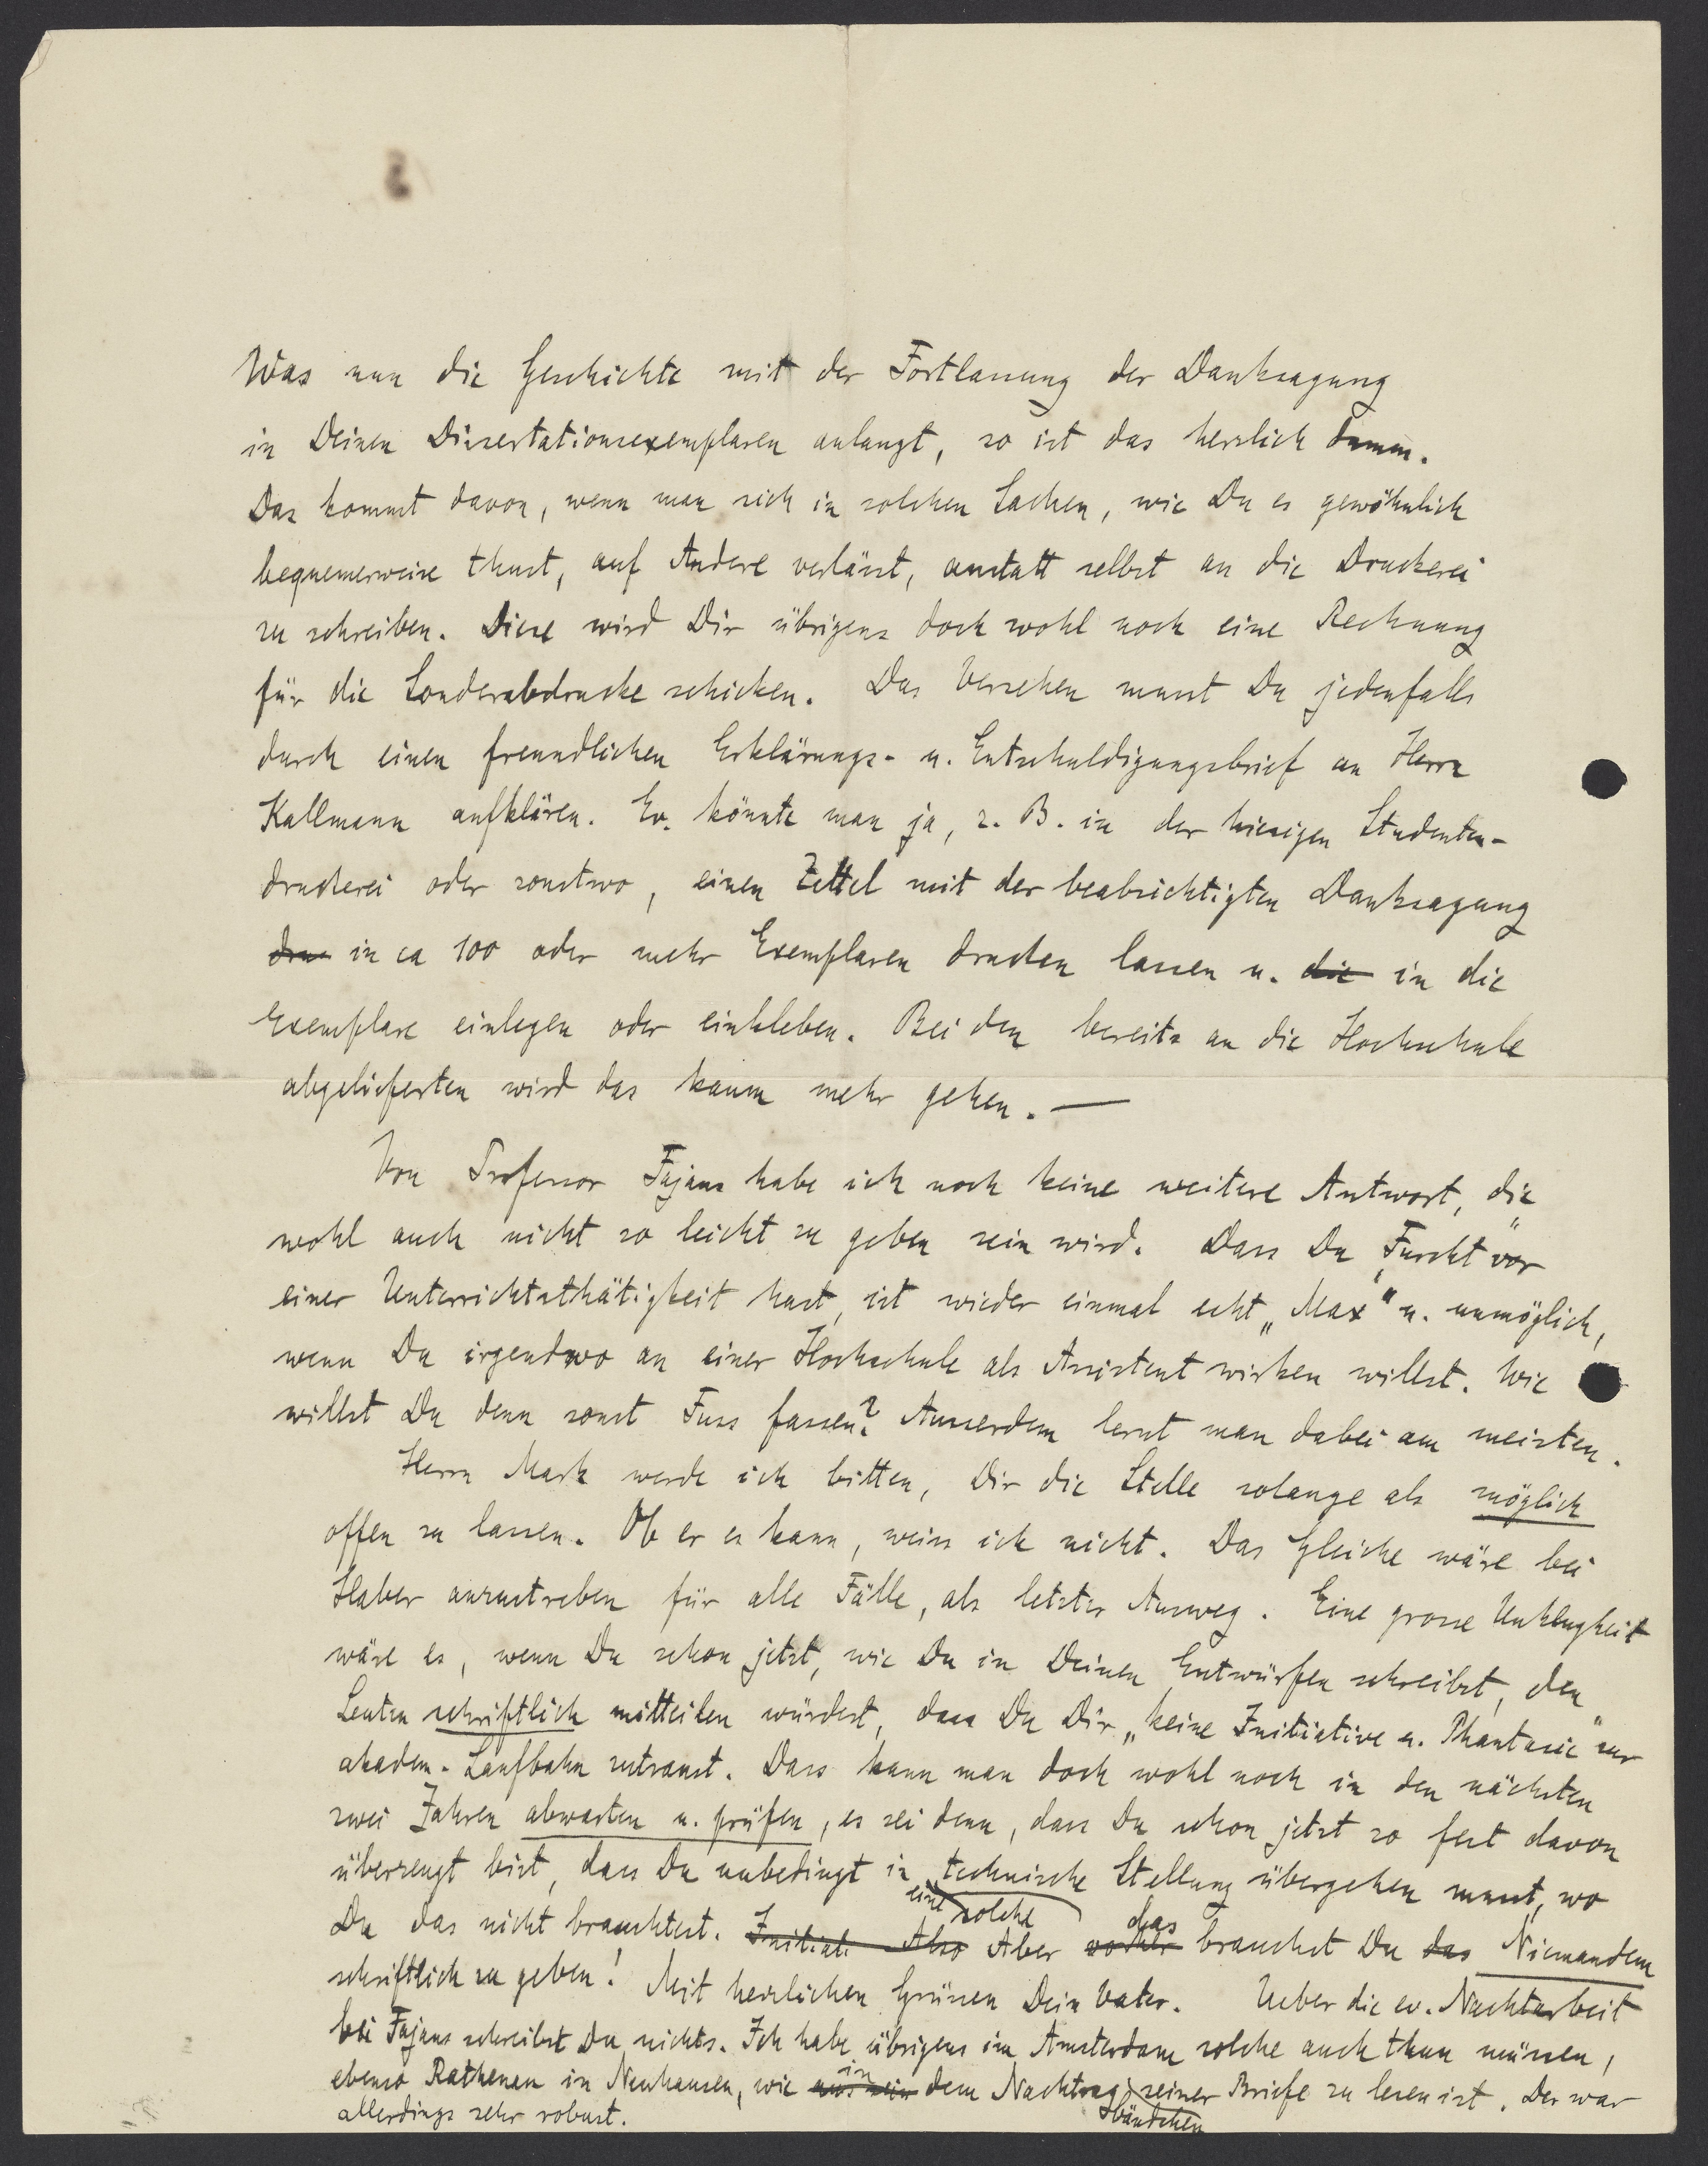 Was nun die Geschichte mit der Fortlassung der Danksagung
in Deinen Dissertationsexemplaren anlangt, so ist das herzlich dumm.
Das kommt davon, wenn man sich in solchen Sachen, wie Du es gewöhnlich
bequemerweise thust, auf Andere verlässt, anstatt selbst an die Druckerei
zu schreiben. Diese wird Dir übrigens doch wohl noch eine Rechnung
für die Sonderabdrucke schicken. Das Versehen musst Du jedenfalls
durch einen freundlichen Erklärungs- u. Entschuldigungsbrief an Herrn
Kallmann aufklären. Ev. könnte man ja, z. B. in der hiesigen Studenten-
druckerei oder sonstwo, einen Zettel mit der beabsichtigten Danksagung
dru in ca 100 oder mehr Exemplaren drucken lassen u. die in die
Exemplare einlegen oder einkleben. Bei den bereits an die Hochschule
abgelieferten wird das kaum mehr gehen. —
Von Professor Fajans habe ich noch keine weitere Antwort, die
wohl auch nicht so leicht zu geben sein wird. Dass Du „Furcht" vor
einer Unterrichtsthätigkeit hast, ist wieder einmal echt „Max" u. unmöglich,
wenn Du irgendwo an einer Hochschule als Assistent wirken willst. Wie
willst Du denn sonst Fuss fassen? Ausserdem lernt man dabei am meisten.
Herrn Mark werde ich bitten, Dir die Stelle solange als möglich
offen zu lassen. Ob er es kann, weiss ich nicht. Das Gleiche wäre bei
Haber anzustreben für alle Fälle, als letzter Ausweg. Eine grosse Unklugheit
wäre es, wenn Du schon jetzt, wie Du in Deinen Entwürfen schreibst, den
Leuten schriftlich mitteilen würdest, dass Du Dir „keine Initiative u. Phantasie" zur
akadem. Laufbahn zutraust. Dass kann man doch wohl noch in den nächsten
zwei Jahren abwarten u. prüfen, es sei denn, dass Du schon jetzt so fest davon
überzeugt bist, dass Du unbedingt in technische Stellung übergehen musst, wo
eine solche das
Du das nicht brauchtest. Initiati Also Aber brauchst Du das Niemandem
schriftlich zu geben! Mit herzlichen Grüssen Dein Vater. Ueber die ev. Nachtarbeit
bei Fajans schreibst Du nichts. Ich habe übrigens in Amsterdam solche auch thun müssen,
in
ebenso Rathenau in Neuhausen, wie aus sein dem Nachtrag seiner Briefe zu lesen ist. Der war
bändchen
allerdings sehr robust.